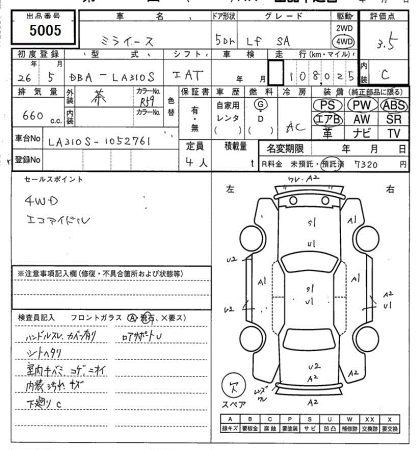 出品番号 車名 ドア形状 グレード 駆動 評価点
5005 ミライース 5DH LF SA 2WD 4WD 3.5
初度登録 型式 シフト 車検 走行(km・マイル) 内装
26 5 DBA-LA310S IAT 年 月 108,025 C
排気量 外装 カラーNo. 色替 保証書 車歴 燃料 冷房 装備(純正部品に限る)
660 c.c. 茶 R59 有・無 自家用 レンタ G D AC PS PW ABS
内装 カラーNo. エアB AW SR
革 ナビ TV
車台No LA310S-1052761 定員 積載量 名変期限 年 月 日
登録No 4人 t R料金 未預託・預託済 7320 円
セールスポイント
4WD
エコアイドル
※注意事項記入欄(修復・不具合箇所および状態等)
検査員記入 フロントガラス(A・飛石、×要ス)
ハンドルスレ カバー有り ロアサポートU
シートヘタリ
室内キバミ コゲ ニオイ
内装汚れ キズ
下廻り C
左 右
A2
S1
U1
U2
A1
欠
スペア
A B C P S U W X XX
線キズ 要板金 腐蝕 要塗装 サビ 凹凸 補修跡 要交換 交換済